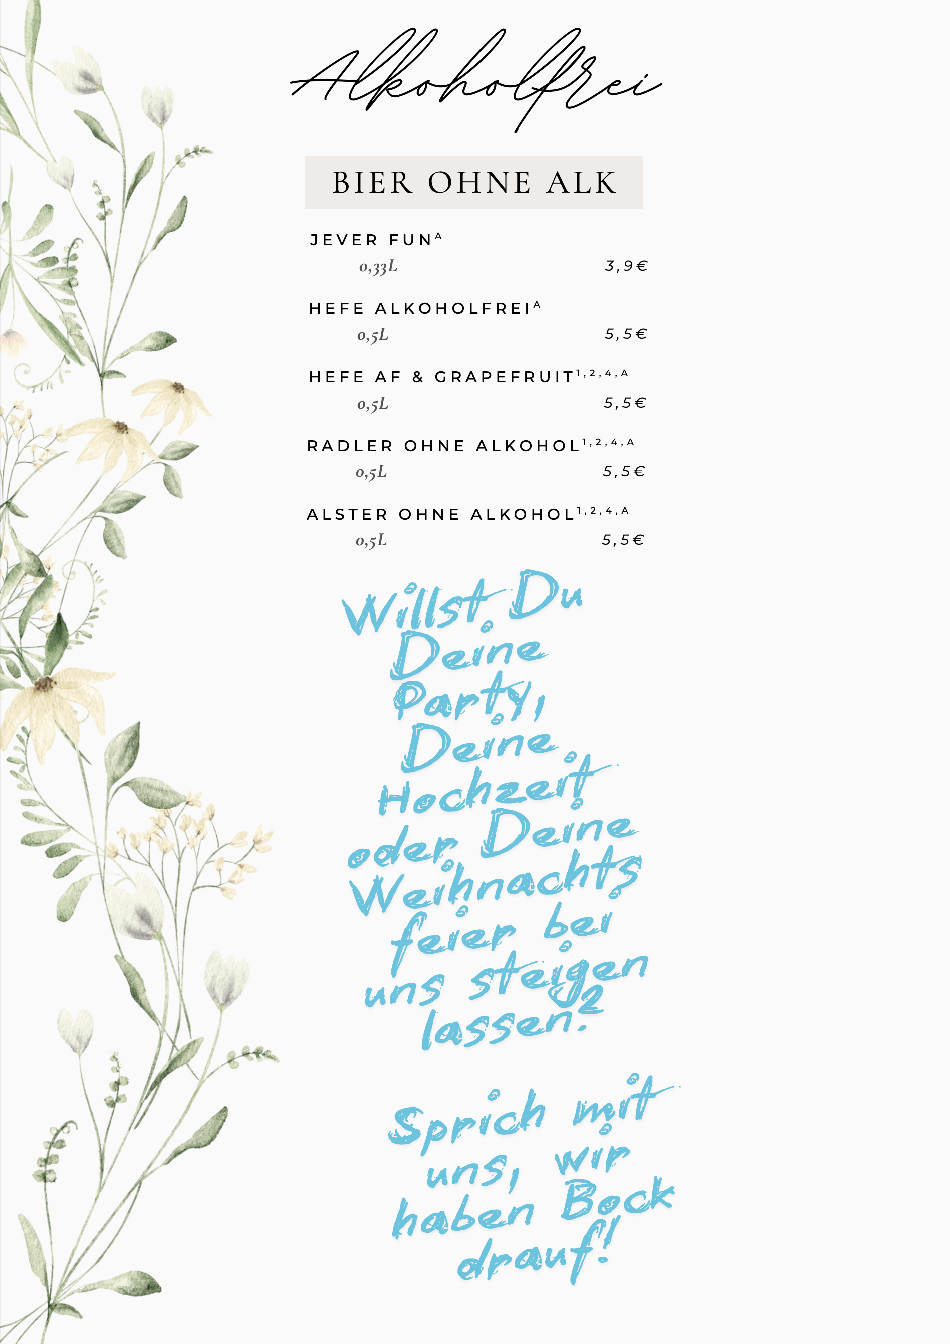 Alkoholfrei
BIER OHNE ALK
JEVER FUNᴬ
0,33L 3,9€
HEFE ALKOHOLFREIᴬ
0,5L 5,5€
HEFE AF & GRAPEFRUIT¹,²,⁴,ᴬ
0,5L 5,5€
RADLER OHNE ALKOHOL¹,²,⁴,ᴬ
0,5L 5,5€
ALSTER OHNE ALKOHOL¹,²,⁴,ᴬ
0,5L 5,5€
Willst Du
Deine
Party,
Deine
Hochzeit
oder Deine
Weihnachts
feier bei
uns steigen
lassen?
Sprich mit
uns, wir
haben Bock
drauf!